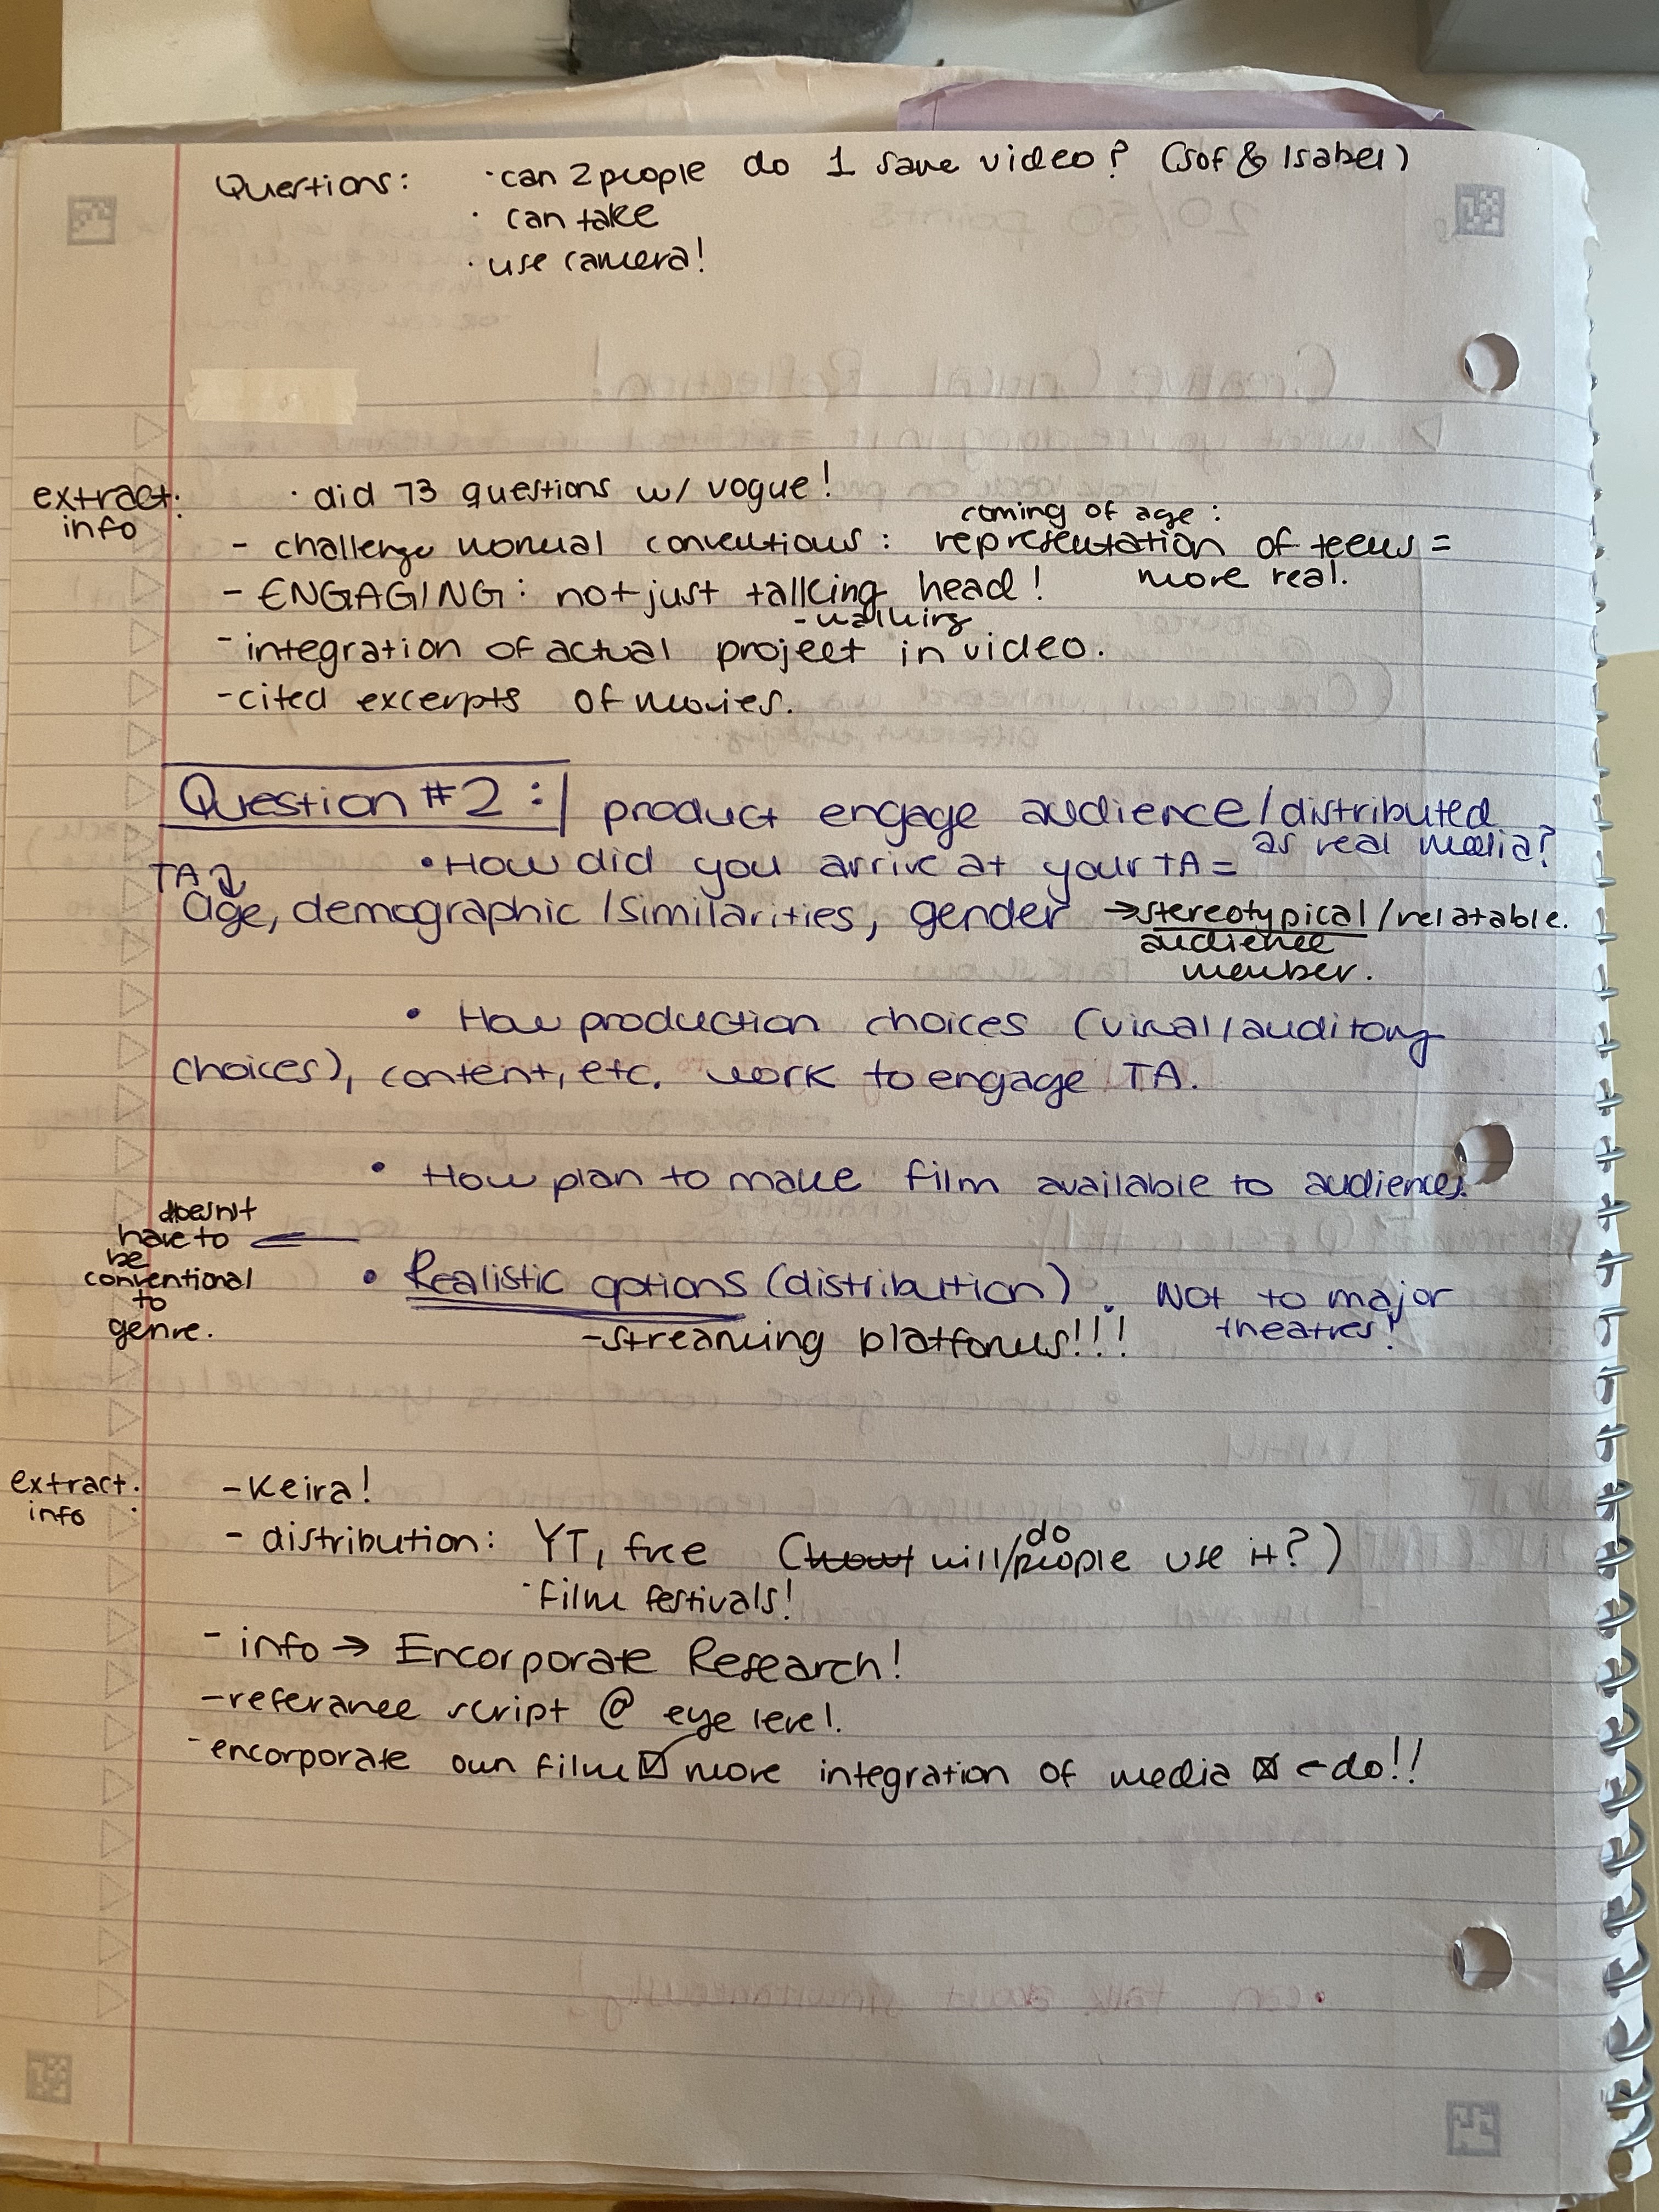 Questions: · can 2 people do 1 same video? (Sof & Isabel)
· can take
· use camera!
extract: · did 73 questions w/ vogue!
info
coming of age:
- challenge normal conventions: representation of teens =
more real.
- ENGAGING: not just talking head!
- walking
- integration of actual project in video.
- cited excerpts of movies.
Question #2: product engage audience/distributed
as real media?
• How did you arrive at your TA =
TA
age, demographic/similarities, gender → stereotypical/relatable.
audience
member.
• How production choices (visual/auditory
choices), content, etc. work to engage TA.
• How plan to make film available to audiences.
doesn't
have to
be
conventional
to
genre.
• Realistic options (distribution). Not to major
theatres!
- streaming platforms!!!
extract. - Keira!
info
- distribution: YT, free (how will/do people use it?)
· film festivals!
- info → Encorporate Research!
- referance script @ eye level.
- encorporate own film ☑ more integration of media ☒ ← do!!